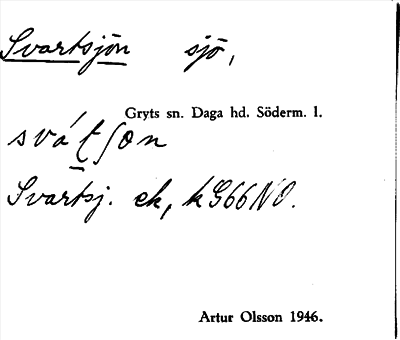 Svartsjön sjö,
Gryts sn. Daga hd. Söderm. l.
svátʃon
Svartsj. ek, kG66NO.
Artur Olsson 1946.